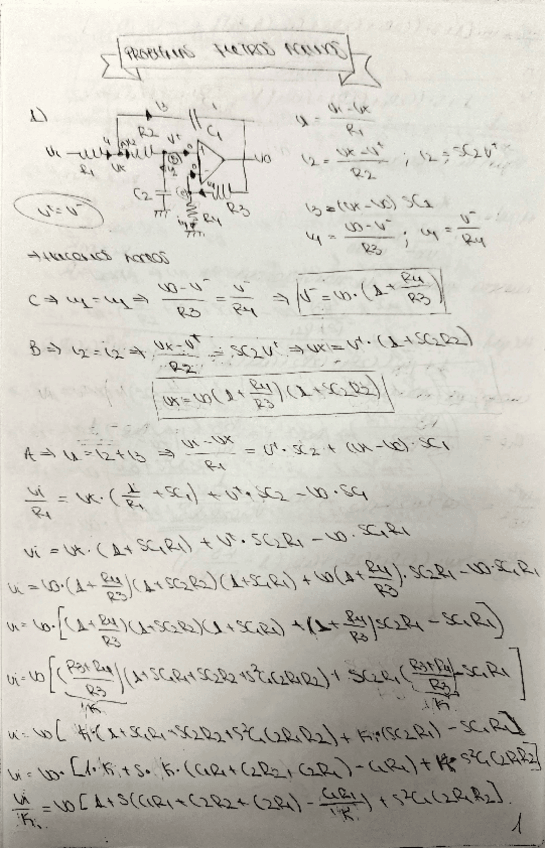 PROBLEMAS FILTROS ACTIVOS
1)
i3
R2
C1
V+
Vi
R1
Vx
C2
R4
R3
VO
V+=V-
i1 = (Vi-Vx)/R1
i2 = (Vx-V+)/R2 ; i2 = SC2V+
i3 = (Vx-VO) SC1
i4 = (VO-V-)/R3 ; i4 = V-/R4
C ⇒ i4 = i4 ⇒ (VO-V-)/R3 = V-/R4 ⇒ V- = VO·(1+R4/R3)
B ⇒ i2 = i2 ⇒ (Vx-V+)/R2 = SC2V+ ⇒ Vx = V+·(1+SC2R2)
Vx = VO(1+R4/R3)(1+SC2R2)
A ⇒ i1 = i2+i3 ⇒ (Vi-Vx)/R1 = V+·SC2 + (Vx-VO)·SC1
Vi/R1 = Vx·(1/R1 + SC1) + V+·SC2 - VO·SC1
Vi = Vx·(1+SC1R1) + V+·SC2R1 - VO·SC1R1
Vi = VO·(1+R4/R3)(1+SC2R2)(1+SC1R1) + VO(1+R4/R3)·SC2R1 - VO·SC1R1
Vi = VO·[(1+R4/R3)(1+SC2R2)(1+SC1R1) + (1+R4/R3)SC2R1 - SC1R1]
Vi = VO[((R3+R4)/R3)(1+SC1R1+SC2R2+S²C1C2R1R2) + SC2R1((R3+R4)/R3) - SC1R1]
K K
Vi = VO[K·(1+SC1R1+SC2R2+S²C1C2R1R2) + K·(SC2R1) - SC1R1]
Vi = VO·[1·K+S·K·(C1R1+C2R2+C2R1) - C1R1) + K·S²C1C2R1R2]
Vi/K = VO[1+S(C1R1+C2R2+C2R1) - C1R1/K) + S²C1C2R1R2].
1